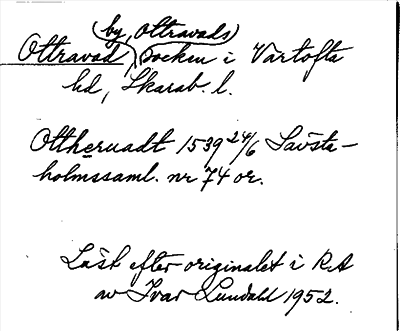 by, Ottravads
Ottravad, socken i Vartofta
hd, Skarab. l.
Ottheruadt 1539 24/6 Sävsta-
holmssaml. nr 74 or.
Läst efter originalet i RA
av Ivar Lundahl 1952.